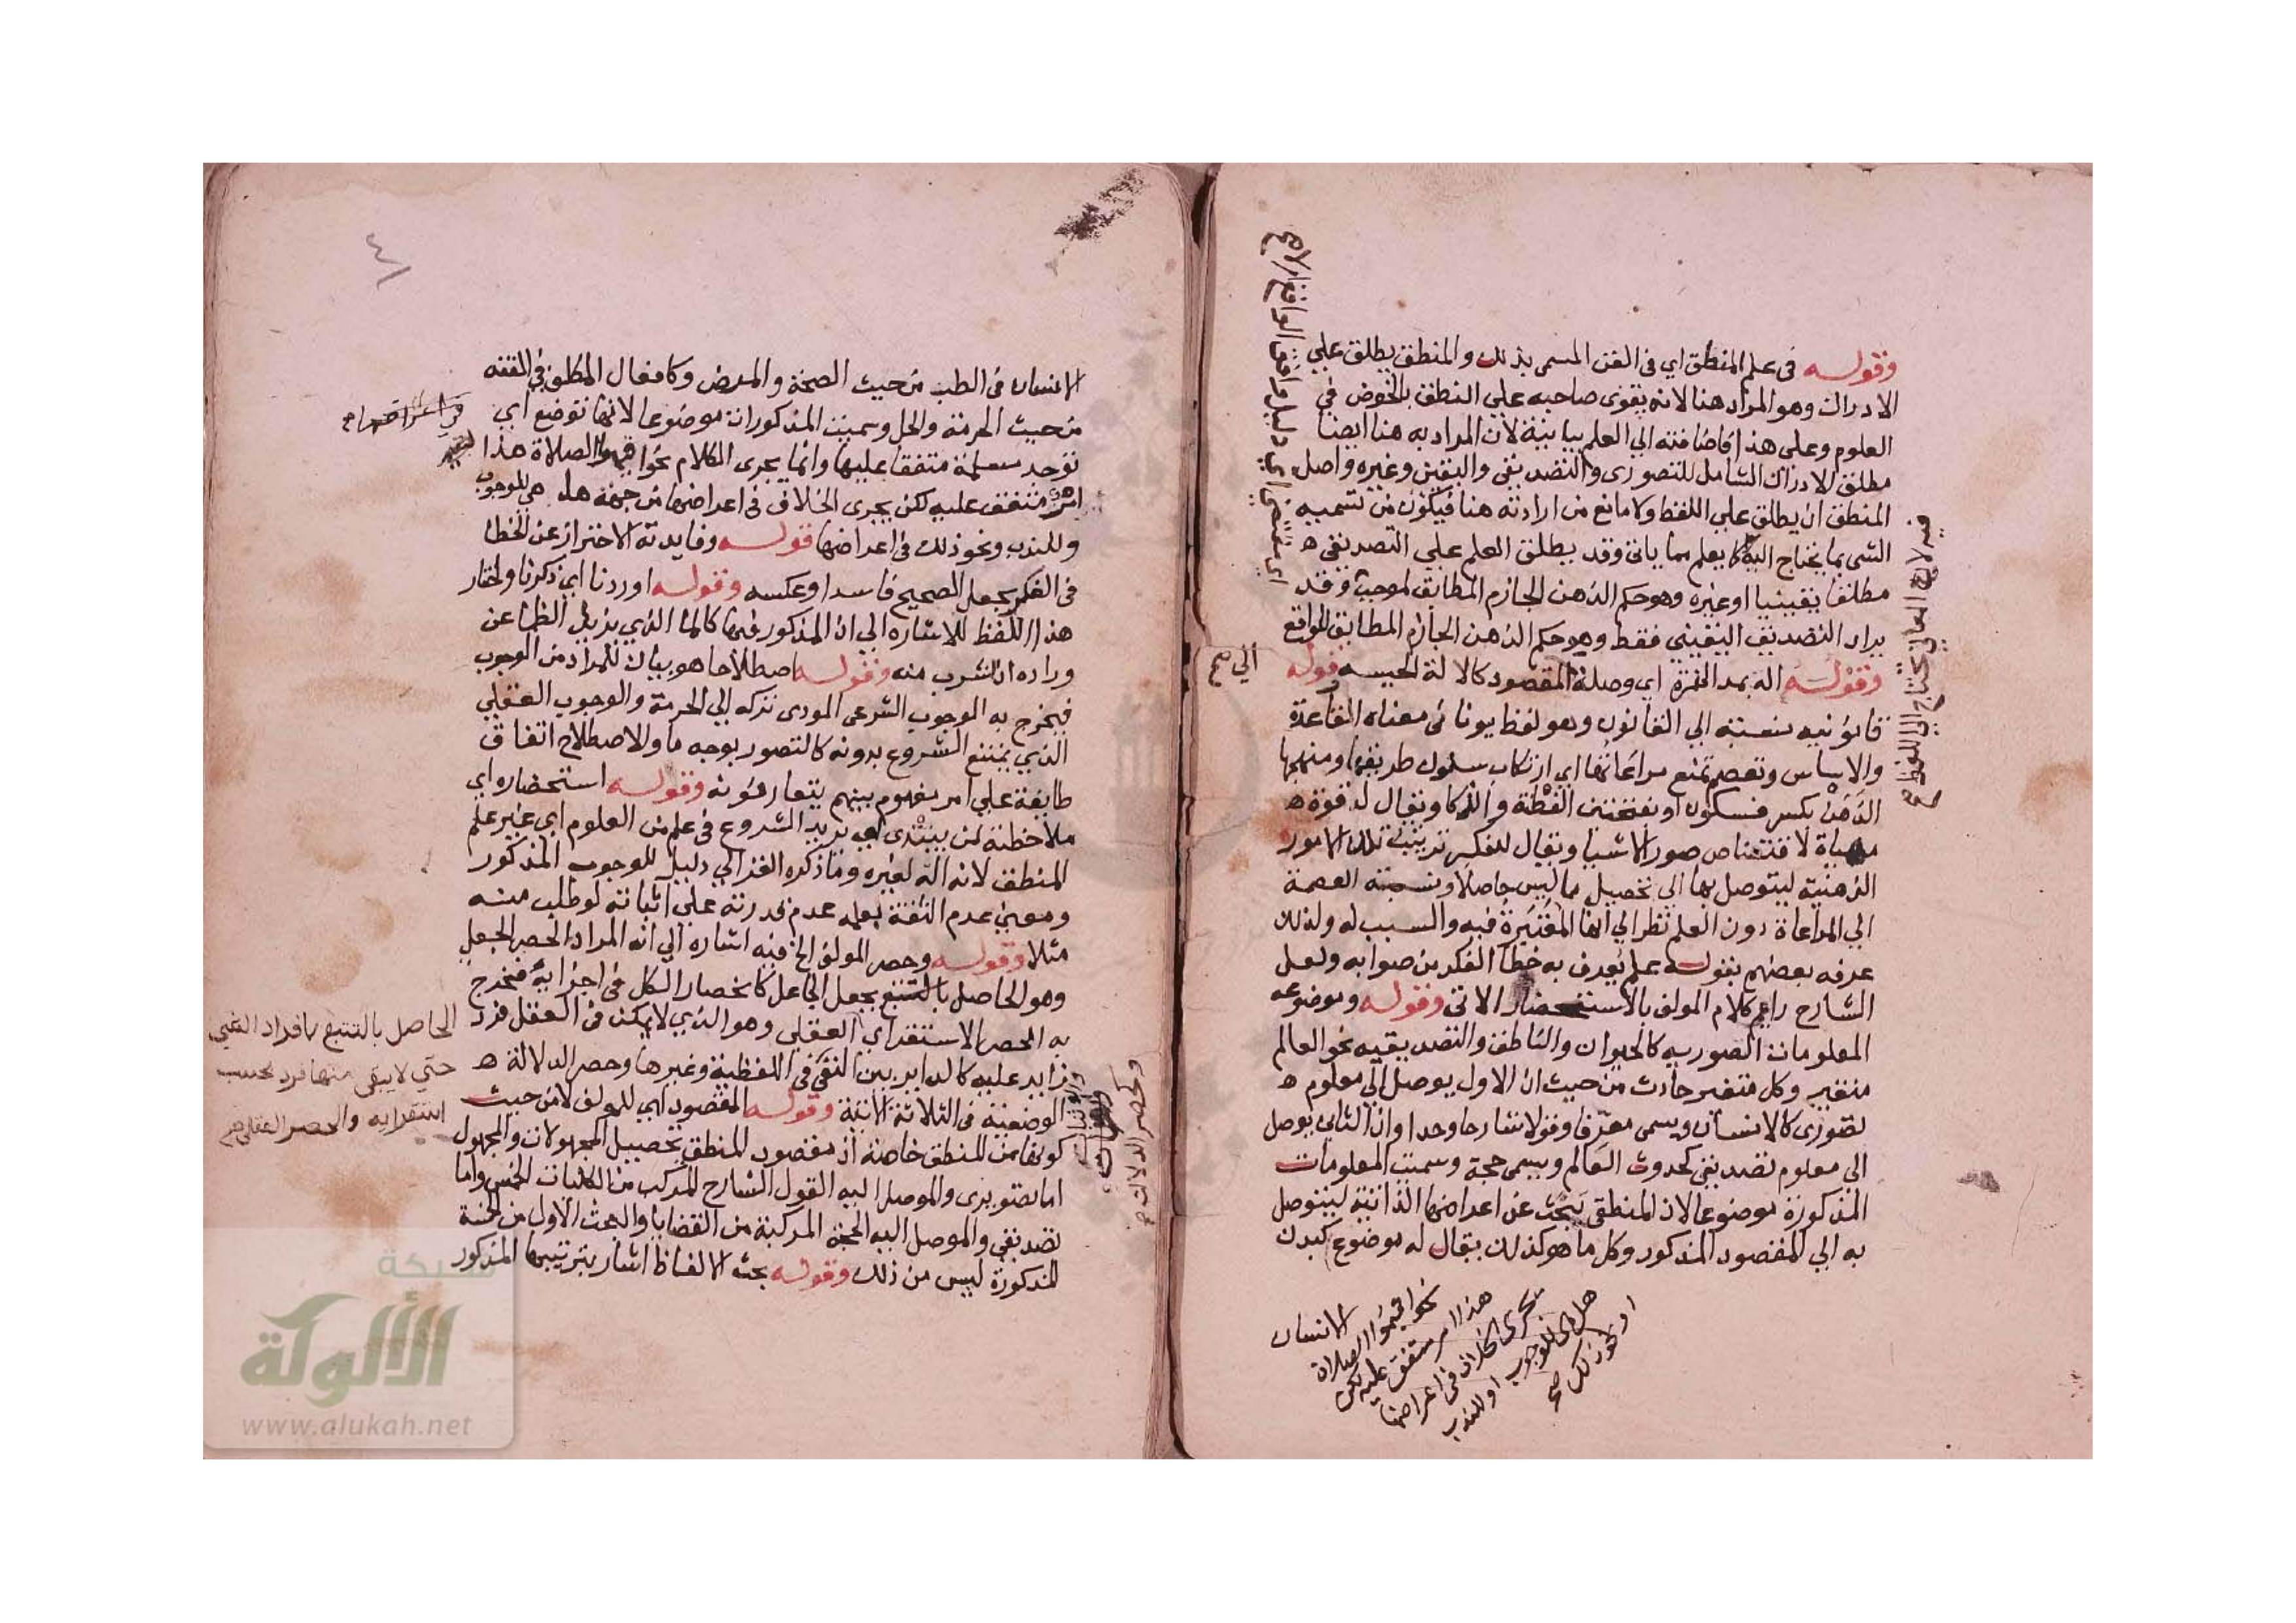 وقوله في علم المنطق اي في الفن المسمى بذلك والمنطق يطلق علي
الادراك وهو المراد هنا لانه يقوى صاحبه علي النطق بالخوض في
العلوم وعلى هذا فاضافته الي العلم بيانية لان المراد به هنا ايضا
مطلق الادراك الشامل للتصوري والتصديقي واليقين وغيره واصل
المنطق ان يطلق علي اللفظ ولا مانع من ارادته هنا فيكون من تسميه
الشي بما يحتاج اليه كما يعلم مما ياتي وقد يطلق العلم علي التصديقي ه
مطلقا يقينيا او غيره وهو حكم الذهن الجازم المطابق لموجب وقد
يراد التصديق اليقيني فقط وهو حكم الذهن الجازم المطابق للواقع
وقوله الة بمد الهمزة اي وصلة المقصود كالالة الحسيه قوله
قانونيه نسبة الي القانون وهو لفظ يوناني معناه القاعدة
والاساس وتعصم تمنع مراعاتها اي ارتكاب سلوك طريقها ومنهجها
الذهن بكسر فسكون او بفتحتين الفطنة والذكا ويقال له قوة ه
مهياة لاقتناص صور الاشيا ويقال للفكر ترتيب تلك الامور
الذهنية ليتوصل بها الي تحصيل ما ليس حاصلا ونسبة العصمة
الي المراعاة دون العلم نظرا الي انها المعتبرة فيه والسبب له ولذلك
عرفه بعضهم بقوله علم يعرف به خطا الفكر من صوابه ولعل
الشارح راعى كلام المولف بالاستحضار الاتي وقوله وموضوعه
المعلومات التصوريه كالحيوان والناطق والتصديقيه نحو العالم
متغير وكل متغير حادث من حيث ان الاول يوصل الي معلوم ه
تصوري كالانسان ويسمى معرفا وقولا شارحا وحدا وان الثاني يوصل
الي معلوم تصديقي كحدوث العالم ويسمى حجة وسميت المعلومات
المذكورة موضوعا لان المنطقي يبحث عن اعراضها الذاتية ليتوصل
به الي المقصود المذكور وكل ما هو كذلك يقال له موضوع كبدن
الانسان
الي صح
نحو اقيموا الصلاة
هذا امر متفق عليه لكن
يجري الخلاف في اعراضها
هل هي للوجوب او للندب
او نحو ذلك صح
٤
الانسان في الطب من حيث الصحة والمرض وكافعال المكلف في الفقه
من حيث الحرمة والحل وسميت المذكورات موضوعا لانها توضع اي
توجد مسلمة متفقا عليها وانما يجرى الكلام نحو اقيموا الصلاة هذا
امر متفق عليه لكن يجرى الخلاف في اعراضها من جهة هل هي للوجوب
وللندب ونحو ذلك في اعراضها قوله وفايدته الاحتراز عن الخطا
في الفكر بجعل الصحيح فاسدا وعكسه وقوله اوردنا اي ذكرنا واختار
هذا اللفظ للاشاره الي ان المذكور فيها كالماء الذي يزيل الظما عن
وراده ان شرب منه وقوله اصطلاحا هو بيان للمراد من الوجوب
فيخرج به الوجوب الشرعي المودى تركه الي الحرمة والوجوب العقلي
الذي يمتنع الشروع بدونه كالتصور بوجه ما والاصطلاح اتفاق
طايفة علي امر مفهوم بينهم يتعارفونه وقوله استحضاره اي
ملاحظته لمن يبتدى اي يريد الشروع في علم من العلوم اي غير علم
المنطق لانه الة لغيره وما ذكره الغزالي دليل للوجوب المذكور
ومعني عدم الثقة بعلمه عدم قدرته علي اثباته لو طلب منه
مثلا وقوله وحصر المولف الخ فيه اشاره الي انه المراد الحصر الجعلي
وهو الحاصل بالتتبع بجعل الجاعل كانحصار الكل في اجزايه فخرج
به الحصر الاستقراي العقلي وهو الذي لا يمكن في العقل فرد
زايد عليه كالداير بين النفي في اللفظية وغيرها وحصر الدلالة ه
الوضعية في الثلاثة الاتية وقوله المقصود اي للمولف لا من حيث
كونها من المنطق خاصة اذ مقصود المنطق تحصيل المجهولات والمجهول
اما تصوري والموصل اليه القول الشارح المركب من الكليات الخمس واما
تصديقي والموصل اليه الحجة المركبة من القضايا والبحث الاول من الخمسة
المذكورة ليس من ذلك وقوله بحث الالفاظ اشار بترتيبها المذكور
الحاصل بالتتبع لافراد الشي
حتي لا يبقى منها فرد بحسب
استقرايه والحصر العقلي صح
وكحصر الدلالة
شبكة
الألوكة
www.alukah.net